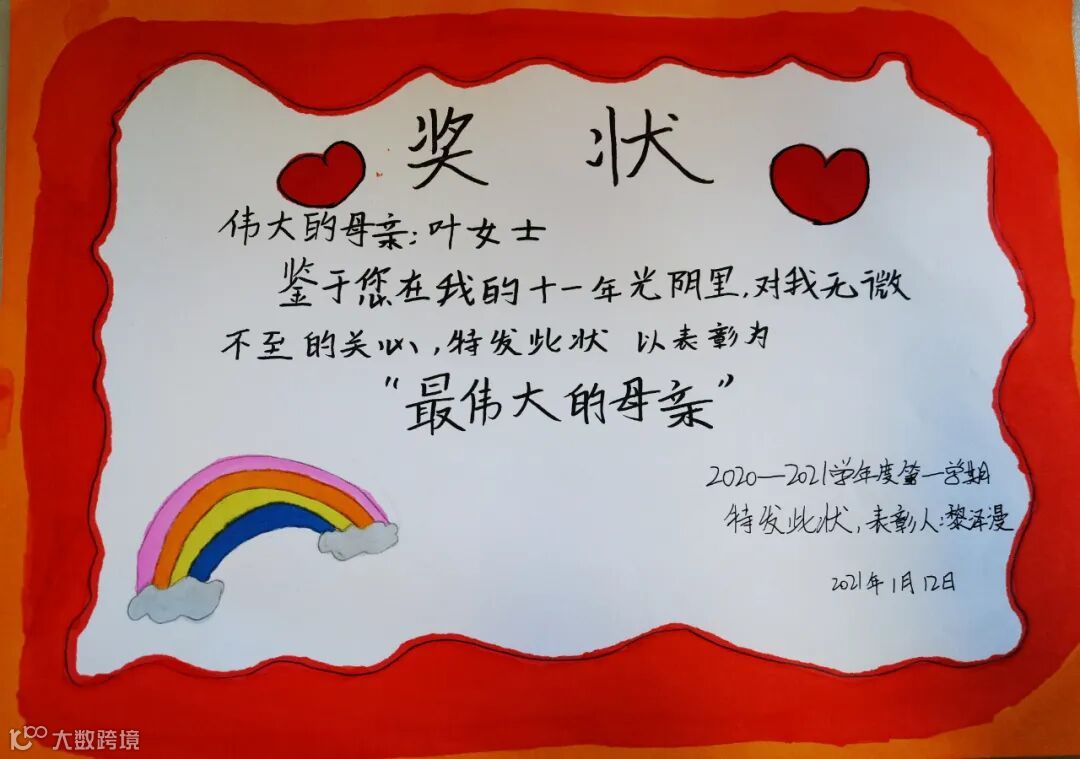 奖状
伟大的母亲:叶女士
鉴于您在我的十一年光阴里,对我无微
不至的关心,特发此状 以表彰为
“最伟大的母亲”
2020—2021学年度第一学期
特发此状,表彰人:黎泽漫
2021年1月12日
大数跨境